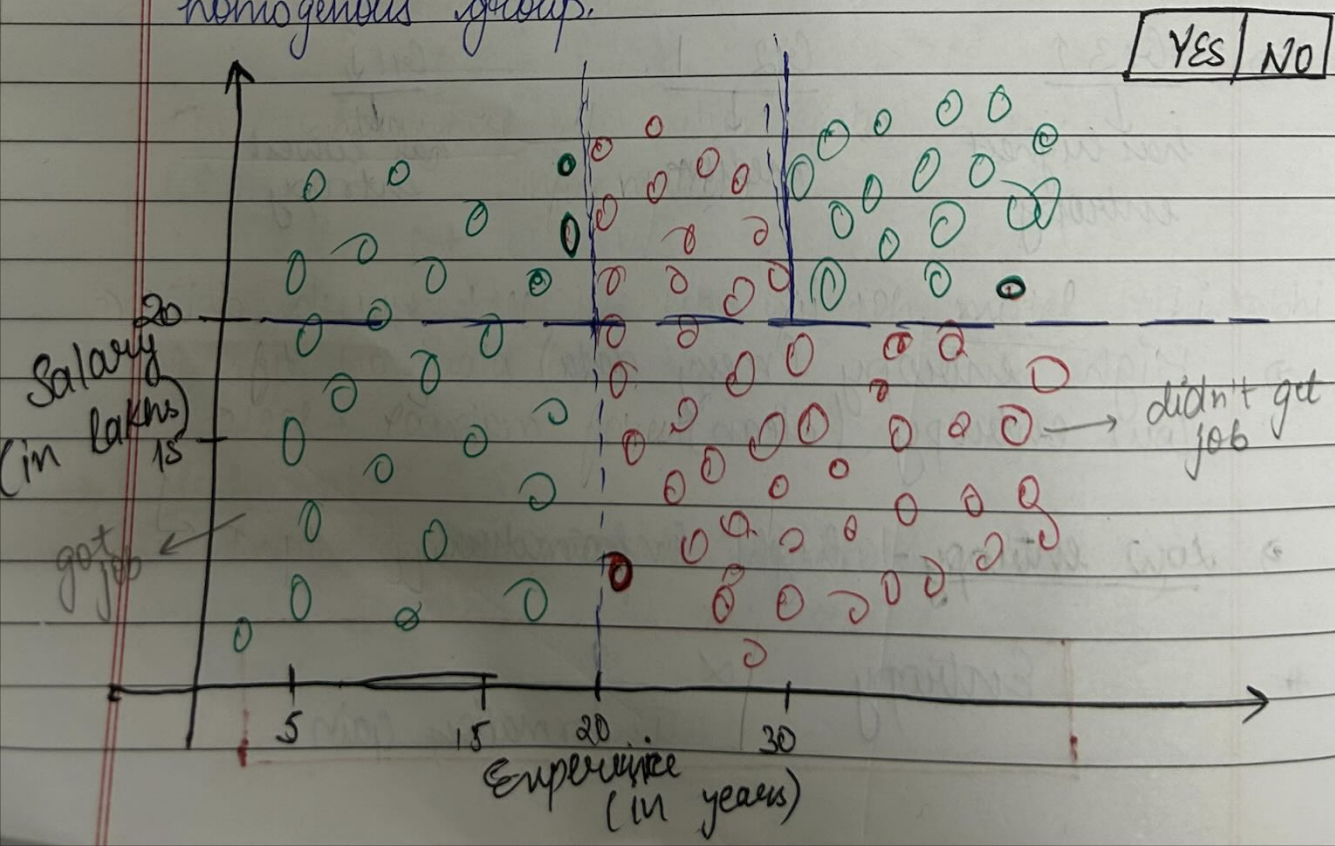 homogenous group.
YES NO
20
Salary
(in lakhs)
15
didn't get
job
got
job
5 15 20 30
Experience
(in years)